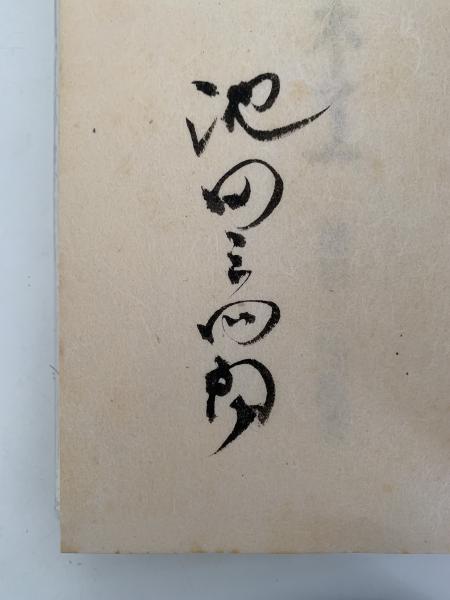 池田三四郎